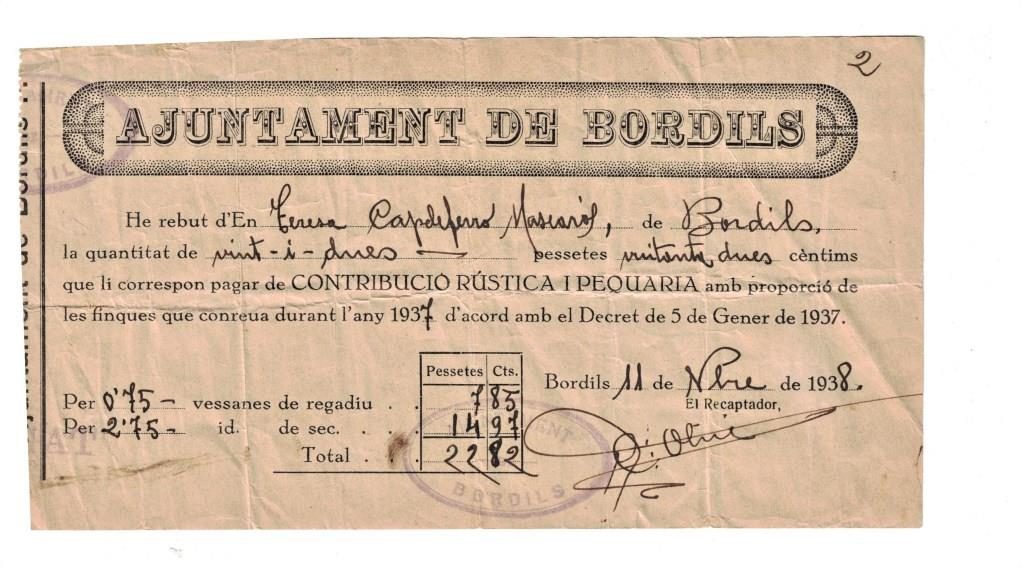 2
AJUNTAMENT DE BORDILS
He rebut d'En Teresa Capdeferro Mascarós, de Bordils,
la quantitat de vint-i-dues — pessetes vuitanta dues cèntims
que li correspon pagar de CONTRIBUCIÓ RÚSTICA I PEQUARIA amb proporció de
les finques que conreua durant l'any 1937 d'acord amb el Decret de 5 de Gener de 1937.
Pessetes Cts.
Bordils 11 de Nbre de 1938.
El Recaptador,
Per 0'75 — vessanes de regadiu . . 7 85
Per 2'75 — id. de sec. . . . 14 97
Total . . 22 82
BORDILS